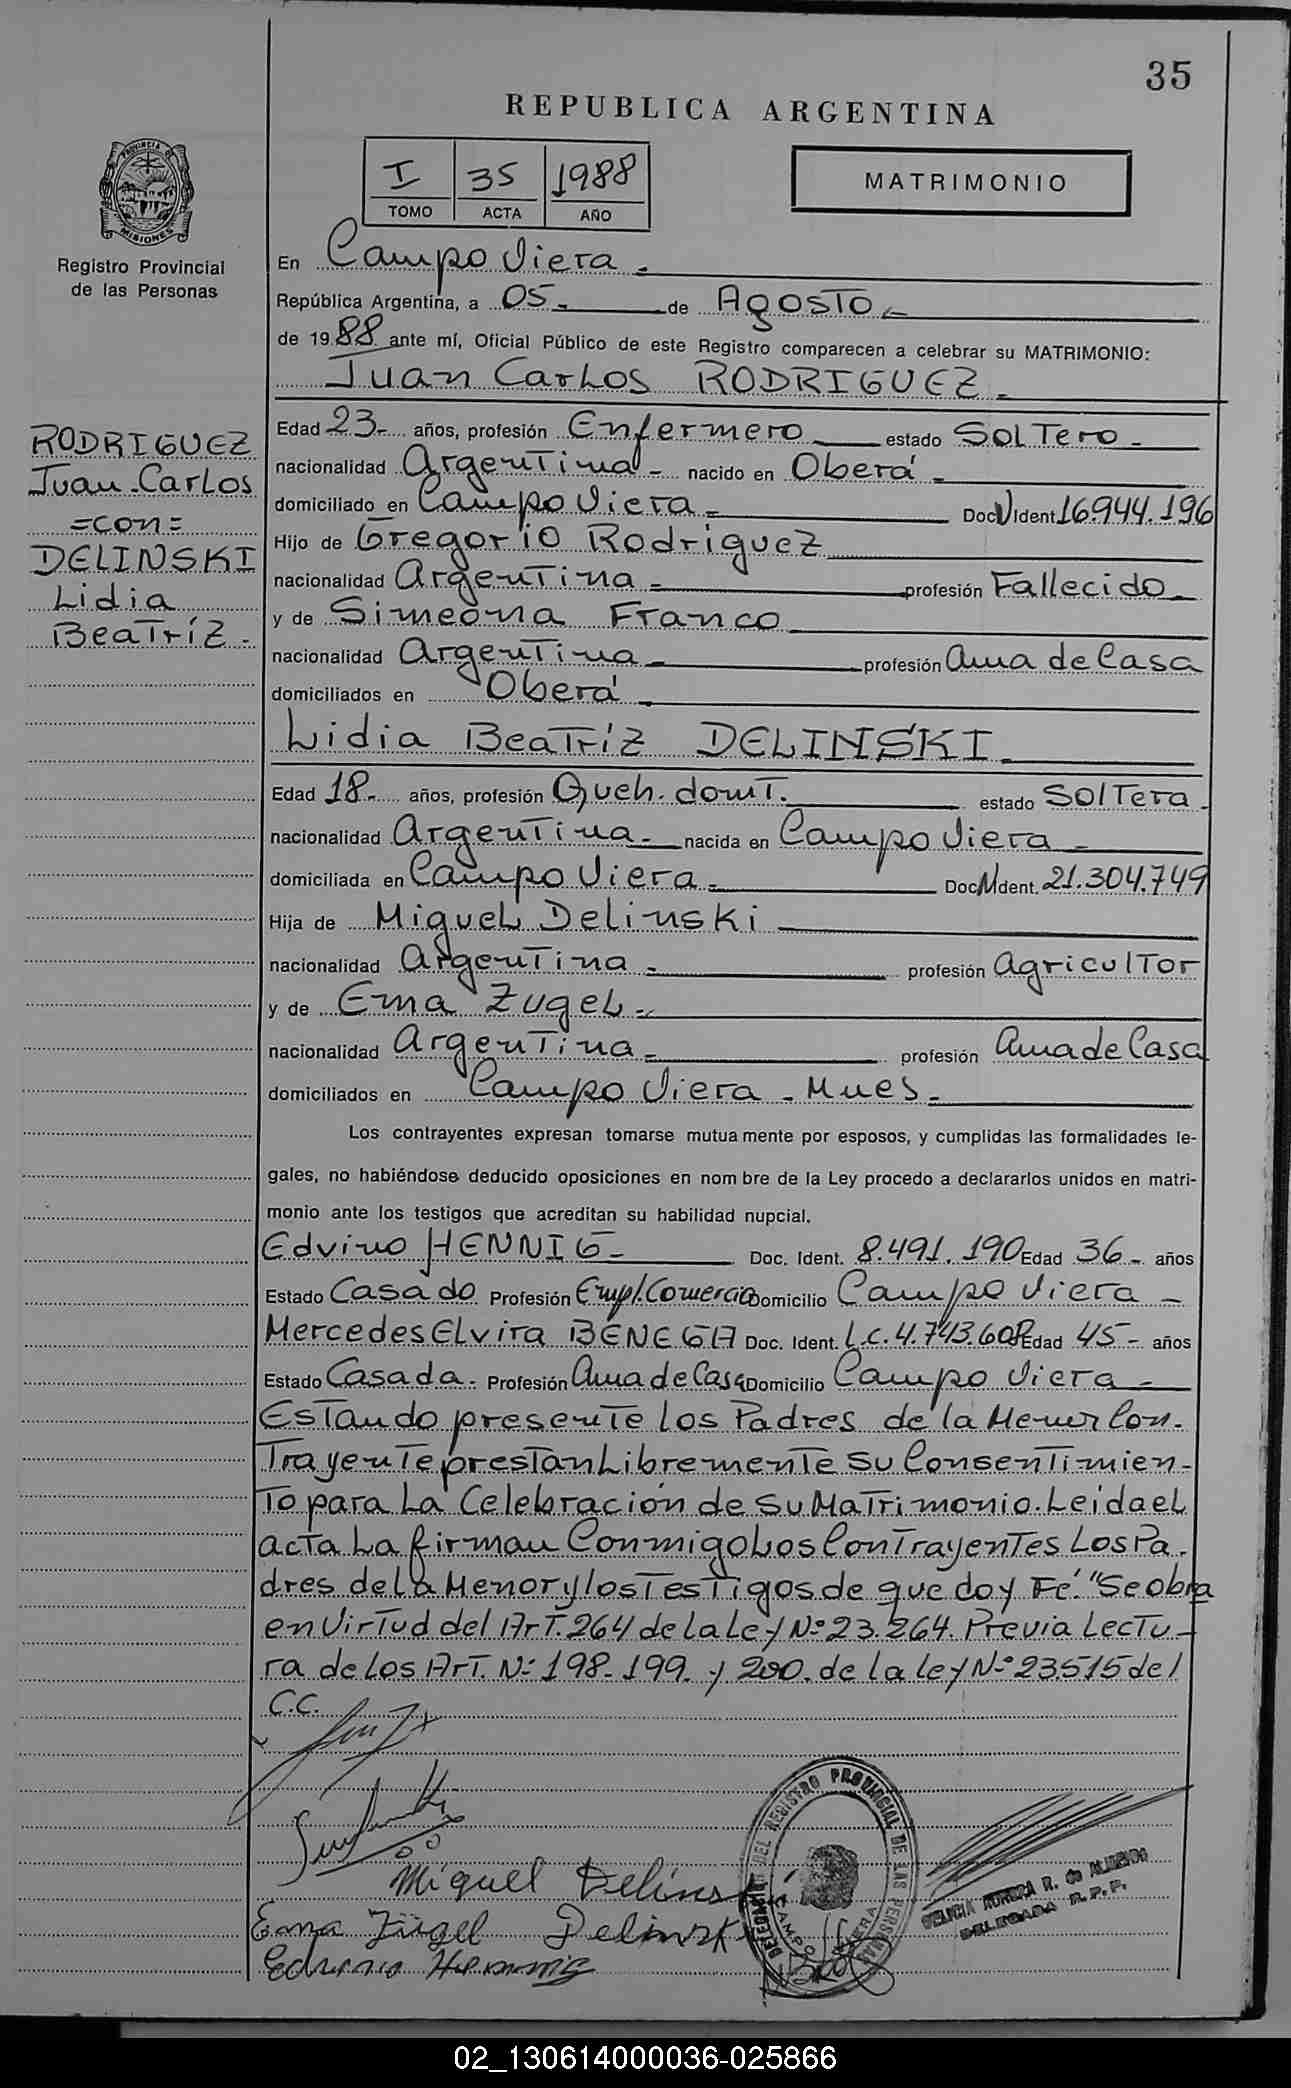 35
REPUBLICA ARGENTINA
I 35 1988
TOMO ACTA AÑO
MATRIMONIO
PROVINCIA DE MISIONES
Registro Provincial
de las Personas
En Campo Viera -
República Argentina, a 05 - de Agosto -
de 1988 ante mí, Oficial Público de este Registro comparecen a celebrar su MATRIMONIO:
Juan Carlos RODRIGUEZ -
RODRIGUEZ
Juan Carlos
=con=
DELINSKI
Lidia
Beatríz -
Edad 23 - años, profesión Enfermero estado Soltero -
nacionalidad Argentina - nacido en Oberá -
domiciliado en Campo Viera - Doc Ident 16.944.196
Hijo de Gregorio Rodriguez
nacionalidad Argentina - profesión Fallecido -
y de Simeona Franco
nacionalidad Argentina - profesión Ama de Casa
domiciliados en Oberá
Lidia Beatríz DELINSKI -
Edad 18 - años, profesión Queh. domt. estado Soltera -
nacionalidad Argentina - nacida en Campo Viera -
domiciliada en Campo Viera - Doc Ident. 21.304.749
Hija de Miguel Delinski
nacionalidad Argentina - profesión Agricultor
y de Ema Zugel -
nacionalidad Argentina - profesión Ama de Casa
domiciliados en Campo Viera - Mnes -
Los contrayentes expresan tomarse mutuamente por esposos, y cumplidas las formalidades le-
gales, no habiéndose deducido oposiciones en nombre de la Ley procedo a declararlos unidos en matri-
monio ante los testigos que acreditan su habilidad nupcial.
Edvino HENNIG - Doc. Ident. 8.491.190 Edad 36 - años
Estado Casado Profesión Empl. Comercio Domicilio Campo Viera -
Mercedes Elvira BENEGA Doc. Ident. L.C. 4.743.608 Edad 45 - años
Estado Casada - Profesión Ama de Casa Domicilio Campo Viera -
Estando presente los Padres de la Menor Con-
Trayente prestan Libremente su Consentimien-
to para La Celebración de su Matrimonio. Leida el
acta La firman Conmigo Los Contrayentes Los Pa-
dres de la Menor y los Testigos de que doy Fé. "Se obra
en Virtud del Art. 264 de la Ley Nº 23.264. Previa Lectu-
ra de Los Art. Nº 198-199 y 200 de la ley Nº 23515 del
C.C.
Miguel Delinski
Ema Zügel Delinski
Edvino Hennig
DELEGACION DEL REGISTRO PROVINCIAL DE LAS PERSONAS
CAMPO VIERA
DELICIA R. de
DELEGADA R.P.P.
02_130614000036-025866